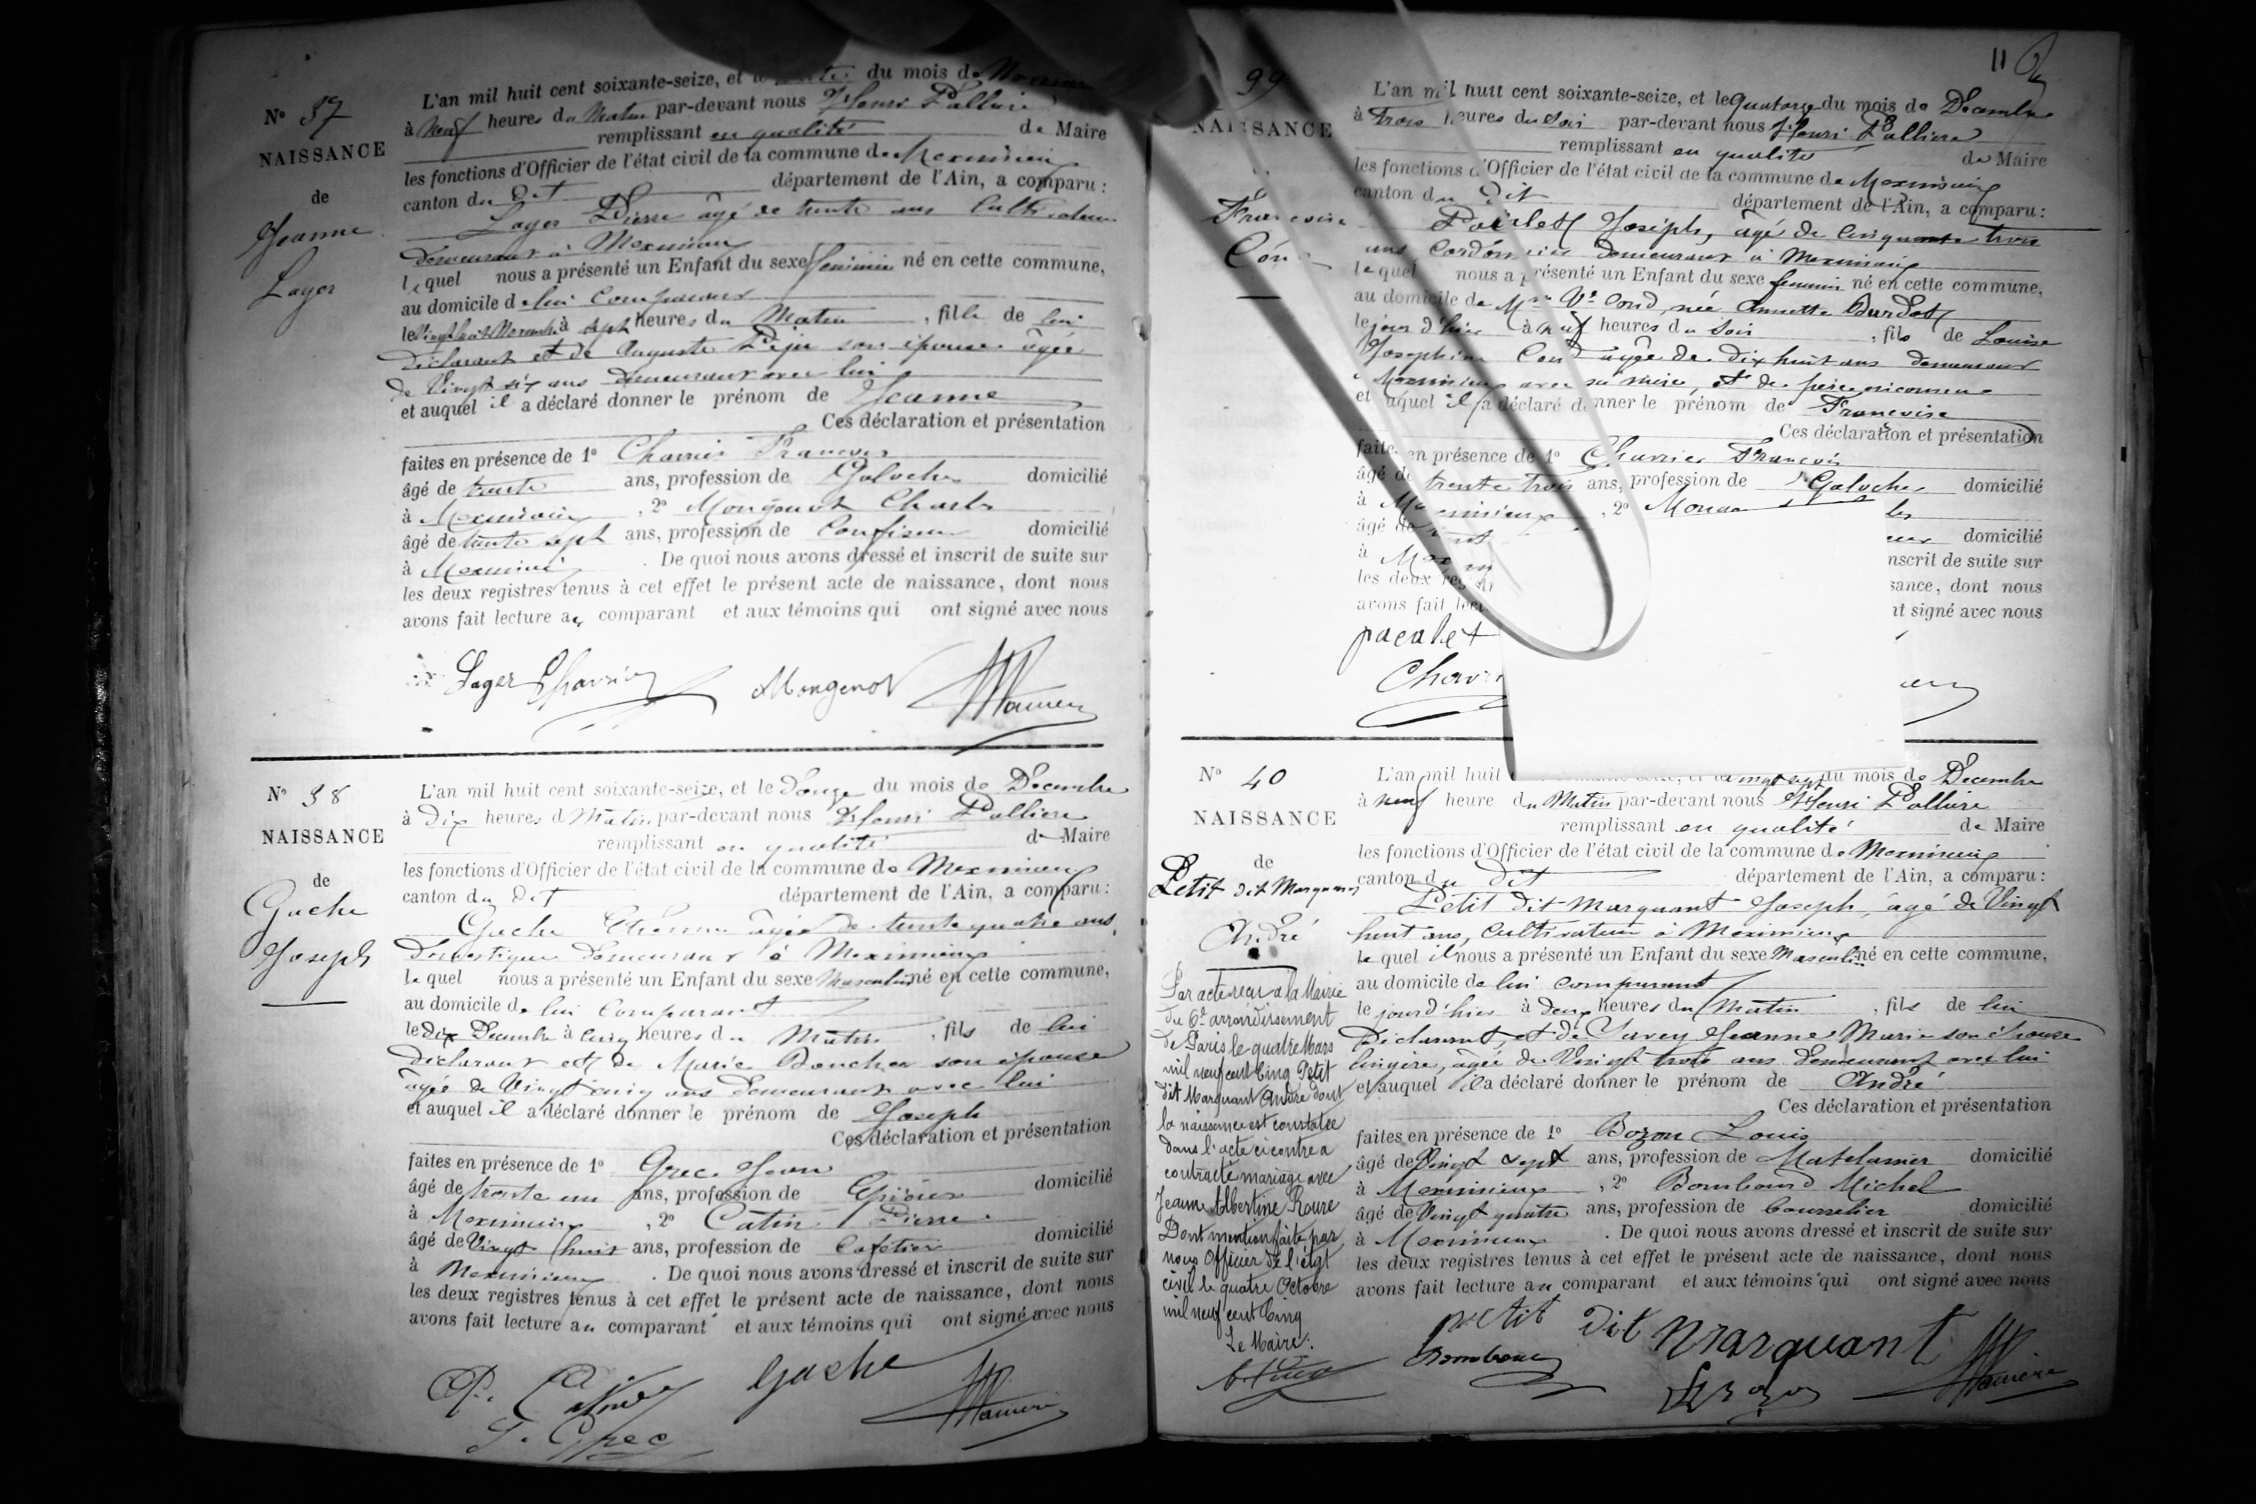 N° 37
NAISSANCE
de
Jeanne
Lager
L'an mil huit cent soixante-seize, et le du mois de
à neuf heures du Matin par-devant nous Henri Pallière
remplissant en qualité de Maire
les fonctions d'Officier de l'état civil de la commune de Meximieux
canton du dit département de l'Ain, a comparu :
Lager Pierre âgé de trente ans Cultivateur
demeurant à Meximieux
lequel nous a présenté un Enfant du sexe féminin né en cette commune,
au domicile de lui Comparant
le Vingt huit Novembre à sept heures du Matin, fille de lui
Déclarant et de son épouse âgée
de Vingt six ans demeurant avec lui
et auquel il a déclaré donner le prénom de Jeanne
Ces déclaration et présentation
faites en présence de 1° Charrier François
âgé de trente ans, profession de Galocher domicilié
à Meximieux, 2° Mongenot Charles
âgé de trente sept ans, profession de Confiseur domicilié
à Meximieux. De quoi nous avons dressé et inscrit de suite sur
les deux registres tenus à cet effet le présent acte de naissance, dont nous
avons fait lecture au comparant et aux témoins qui ont signé avec nous
Lager Charrier Mongenot
N° 38
NAISSANCE
de
Gache
Joseph
L'an mil huit cent soixante-seize, et le Douze du mois de Décembre
à Dix heures du Matin par-devant nous Henri Pallière
remplissant en qualité de Maire
les fonctions d'Officier de l'état civil de la commune de Meximieux
canton du dit département de l'Ain, a comparu :
Gache âgé de trente quatre ans,
Domestique demeurant à Meximieux
lequel nous a présenté un Enfant du sexe Masculin né en cette commune,
au domicile de lui Comparant
le Dix Décembre à cinq heures du Matin, fils de lui
Déclarant et de Marie son épouse
âgée de Vingt cinq ans demeurant avec lui
et auquel il a déclaré donner le prénom de Joseph
Ces déclaration et présentation
faites en présence de 1° Grec Jean
âgé de trente un ans, profession de Epicier domicilié
à Meximieux, 2° Catin Pierre
âgé de Vingt huit ans, profession de Cafetier domicilié
à Meximieux. De quoi nous avons dressé et inscrit de suite sur
les deux registres tenus à cet effet le présent acte de naissance, dont nous
avons fait lecture au comparant et aux témoins qui ont signé avec nous
P. Catin Gache
J. Grec
11
39
NAISSANCE
Françoise
L'an mil huit cent soixante-seize, et le Quatorze du mois de Décembre
à Trois heures du Soir par-devant nous Henri Pallière
remplissant en qualité de Maire
les fonctions d'Officier de l'état civil de la commune de Meximieux
canton du dit département de l'Ain, a comparu :
Joseph, âgé de Cinquante trois
ans, Cordonnier demeurant à Meximieux
lequel nous a présenté un Enfant du sexe féminin né en cette commune,
au domicile de Mme Ve Cond, née Annette
le jour d'hier à neuf heures du Soir, fils de Louise
Joséphine Cond âgée de dix huit ans demeurant
à Meximieux avec sa mère, et de père inconnu
et auquel il a déclaré donner le prénom de Françoise
Ces déclaration et présentation
faites en présence de 1° Charrier François
âgé de trente trois ans, profession de Galocher domicilié
à Meximieux, 2°
âgé de domicilié
à nscrit de suite sur
les deux sance, dont nous
avons fait nt signé avec nous
pacalet
N° 40
NAISSANCE
de
Petit dit Marquant
André
L'an mil huit du mois de Décembre
à neuf heure du Matin par-devant nous Henri Pallière
remplissant en qualité de Maire
les fonctions d'Officier de l'état civil de la commune de Meximieux
canton du dit département de l'Ain, a comparu :
Petit dit Marquant Joseph, âgé de Vingt
huit ans, Cultivateur à Meximieux
le quel il nous a présenté un Enfant du sexe Masculin né en cette commune,
au domicile de lui comparant
le jour d'hier à deux heures du Matin, fils de lui
Déclarant, et de Jeanne Marie son épouse
lingère, âgée de Vingt trois ans demeurant avec lui
et auquel il a déclaré donner le prénom de André
Ces déclaration et présentation
faites en présence de 1° Bozon Louis
âgé de Vingt sept ans, profession de Matelassier domicilié
à Meximieux, 2° Michel
âgé de Vingt quatre ans, profession de Bourrelier domicilié
à Meximieux. De quoi nous avons dressé et inscrit de suite sur
les deux registres tenus à cet effet le présent acte de naissance, dont nous
avons fait lecture au comparant et aux témoins qui ont signé avec nous
petit dit Marquant
Par acte reçu à la Mairie
du 6e arrondissement
de Paris le quatre Mars
mil neuf cent Cinq Petit
dit Marquant André dont
la naissance est constatée
dans l'acte ci contre a
contracté mariage avec
Jeanne Albertine Roure
Dont mention faite par
nous Officier de l'état
civil le quatre Octobre
mil neuf cent Cinq
Le Maire :